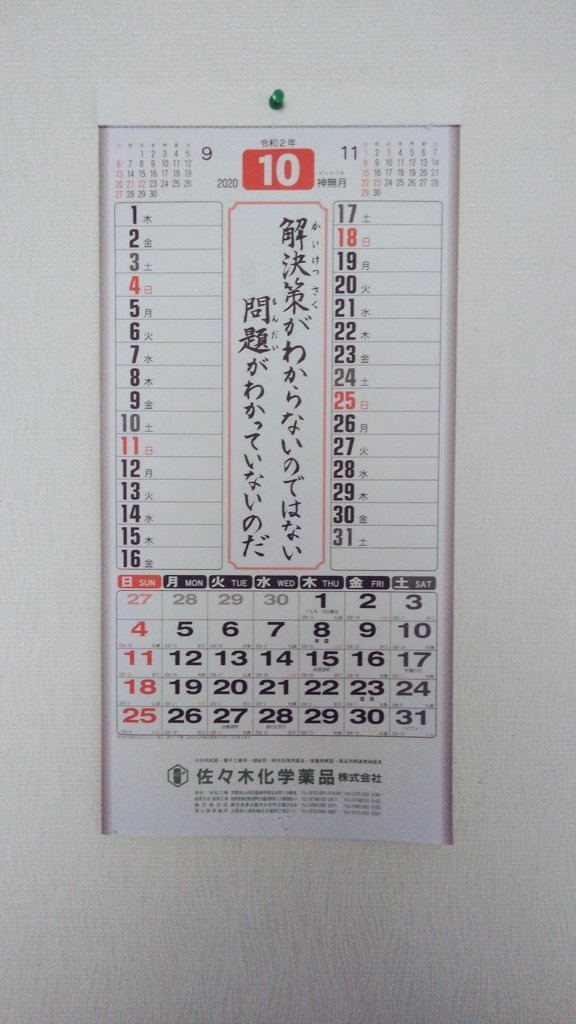 9
日 月 火 水 木 金 土
1 2 3 4 5
6 7 8 9 10 11 12
13 14 15 16 17 18 19
20 21 22 23 24 25 26
27 28 29 30
令和2年
2020 10 神無月
11
日 月 火 水 木 金 土
1 2 3 4 5 6 7
8 9 10 11 12 13 14
15 16 17 18 19 20 21
22 23 24 25 26 27 28
29 30
1 木
2 金
3 土
4 日
5 月
6 火
7 水
8 木
9 金
10 土
11 日
12 月
13 火
14 水
15 木
16 金
かいけつさく
解決策がわからないのではない
もんだい
問題がわかっていないのだ
17 土
18 日
19 月
20 火
21 水
22 木
23 金
24 土
25 日
26 月
27 火
28 水
29 木
30 金
31 土
日 SUN 月 MON 火 TUE 水 WED 木 THU 金 FRI 土 SAT
27 28 29 30 1 2 3
4 5 6 7 8 9 10
11 12 13 14 15 16 17
18 19 20 21 22 23 24
25 26 27 28 29 30 31
佐々木化学薬品株式会社